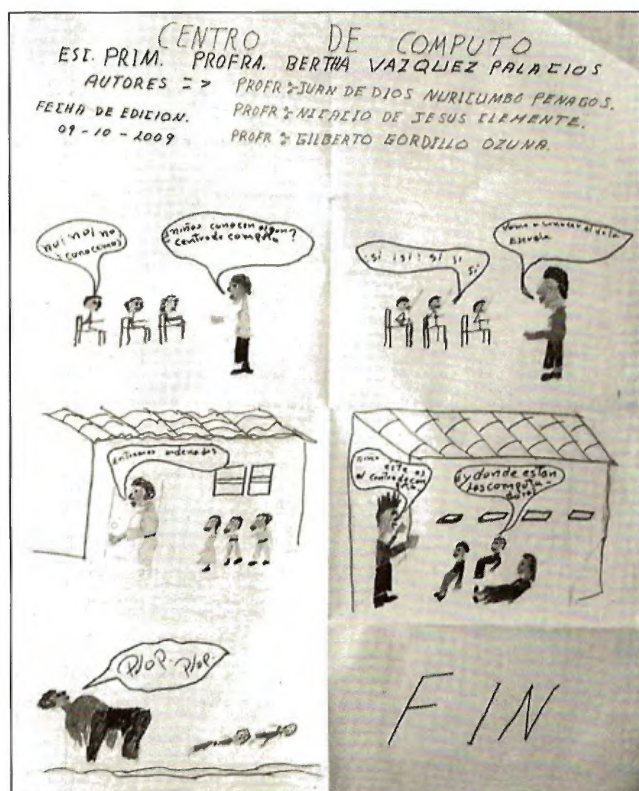 CENTRO DE COMPUTO
ESC. PRIM. PROFRA. BERTHA VAZQUEZ PALACIOS
AUTORES => PROFR: JUAN DE DIOS NURICUMBO PENAGOS.
FECHA DE EDICION.
PROFR: NICACIO DE JESUS CLEMENTE.
09-10-2009
PROFR: GILBERTO GORDILLO OZUNA.
no! no! no
conocemos
niños conocen algun?
centro de computo
si ¡si! si si
si
Vamos a conocer el de la
Escuela
entramos ordenados
este es
el centro de com
y donde estan
las computa-
doras
Plop. Plop.
FIN